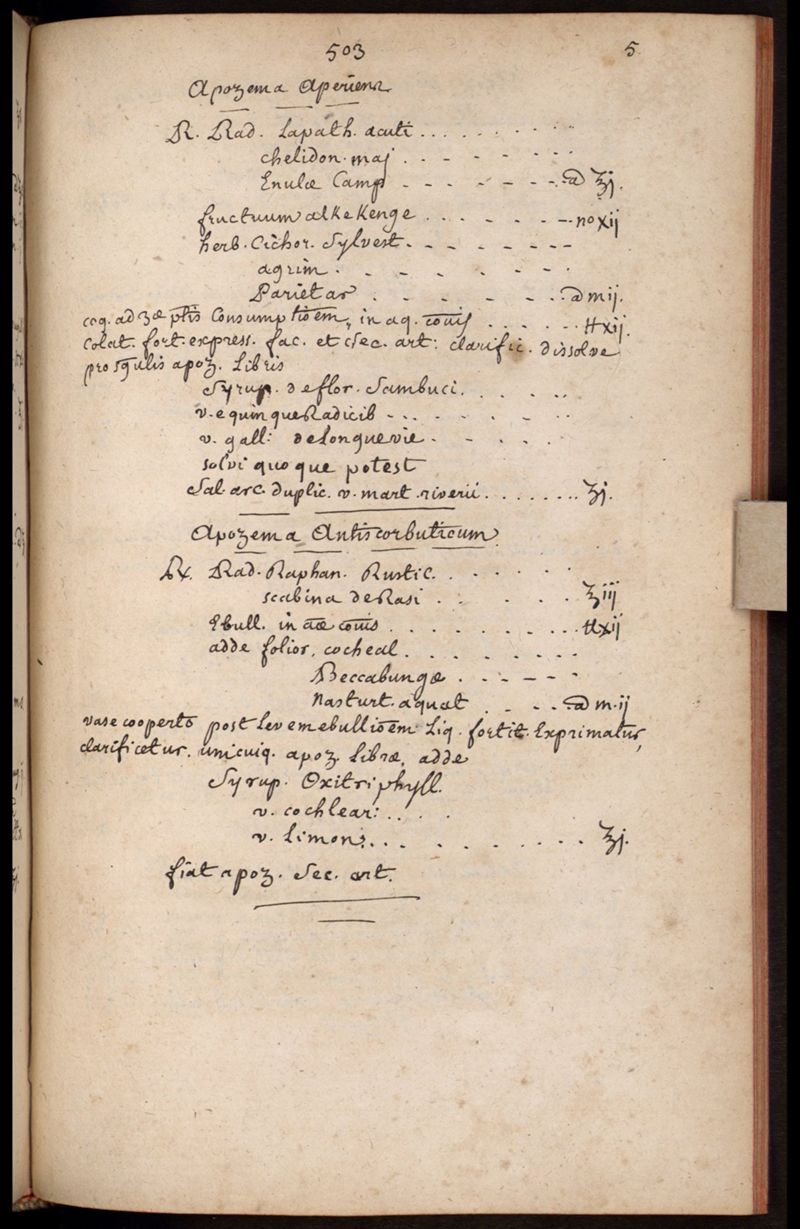 503 5
Apozema Aperiens
R. Rad. Lapath. acuti . . . . . . . . .
chelidon. maj . . - - - . . .
Enulæ Camp - - - . - - - . . ā ℥j.
fructuum alKeKenge . . . - . - - . n° xij
herb. Cichor. Sylvest. - . - - - - -
agrim . . - - . - - .
Parietar . . - . - - . . ā mij.
coq. ad 3æ ptis Consumptioēm, in aq. coūis . . . . . . ℔xij.
Colat. fort. express. fac. et Sec. art: clarific. dissolve
pro sgulis apoz. Libris
Syrup. de flor. Sambuci . . . . .
v. e quinque Radicib - . . - . . - . .
v. gall: de Longuevie . - . . .
solvi quoque potest
Sal. arc. duplic. v. mart. riverii . . . . . . . ℥j.
Apozema Antiscorbuticum
Rx. Rad. Raphan. Rustic. . . . . . .
scabina de Rasi . . . . . . ℥iij
Ebull. in aæ coūis . . . . . . . . ℔xij
adde folior. cocheal . . . . . . . .
Beccabungæ . - - - - .
Nasturt. aquat . - . - . ā m. ij
vase cooperto post Levem ebullitioēm Liq. fortit. Exprimatur,
clarificetur. unicuiq. apoz. Libræ, adde
Syrup. Oxitriphyll.
v. cochlear: . . . .
v. Limon; . . . . . . . . . ℥j.
fiat apoz. Sec. art.